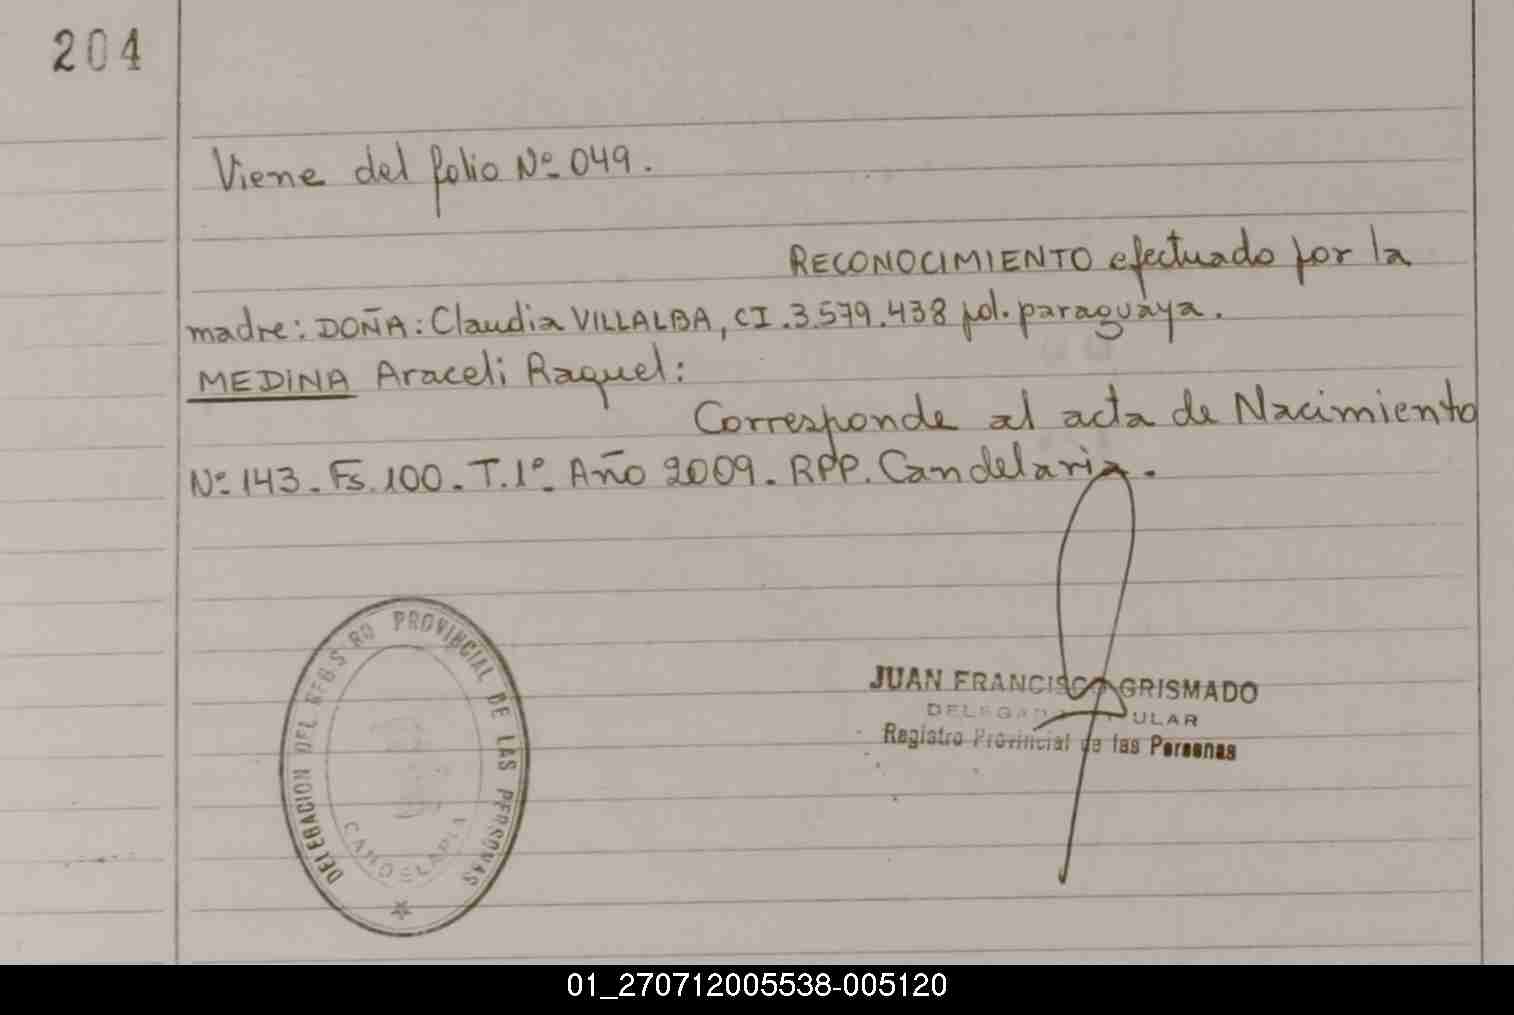 204
Viene del folio Nº 049.
RECONOCIMIENTO efectuado por la
madre: DOÑA: Claudia VILLALBA, CI.3.579.438 pol. paraguáya.
MEDINA Araceli Raquel:
Corresponde al acta de Nacimiento
Nº 143. Fs. 100. T.1º. Año 2009. RPP. Candelaria.
DELEGACION DEL REGISTRO PROVINCIAL DE LAS PERSONAS
CANDELARIA
JUAN FRANCISCO GRISMADO
DELEGADO TITULAR
Registro Provincial de las Personas
01_270712005538-005120